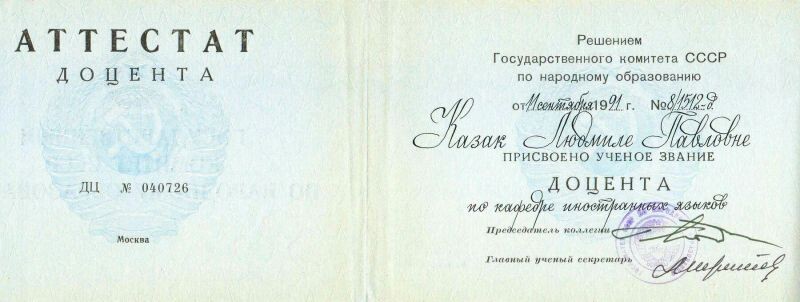 АТТЕСТАТ
ДОЦЕНТА
ДЦ № 040726
Москва
Решением
Государственного комитета СССР
по народному образованию
от 11 сентября 1991 г. № 8/1512-д
Казак Людмиле Павловне
ПРИСВОЕНО УЧЕНОЕ ЗВАНИЕ
ДОЦЕНТА
по кафедре иностранных языков
Председатель коллегии
Главный ученый секретарь